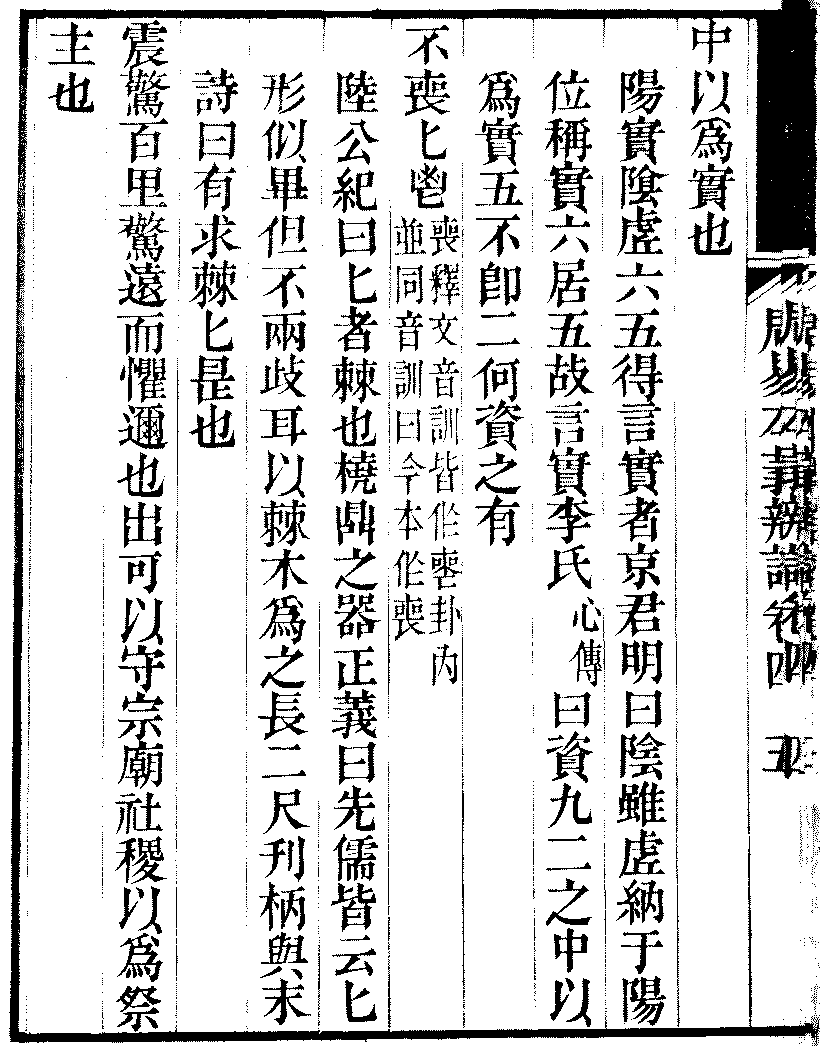 中以為實也
陽實陰虛六五得言實者京君明曰陰雖虛納于陽
位稱實六居五故言實李氏心傳曰資九二之中以
為實五不卽二何資之有
不喪匕鬯喪釋文音訓皆作喪卦內
並同音訓曰今本作喪
陸公紀曰匕者棘也橈鼎之器正義曰先儒皆云匕
形似畢但不兩歧耳以棘木為之長二尺刊柄與末
詩曰有求棘匕是也
震驚百里驚遠而懼邇也出可以守宗廟社稷以為祭
主也